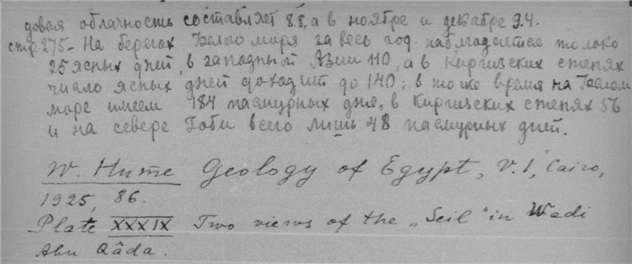 довая облачность составляет 88, а в ноябре и декабре 9.4.
стр. 275 - На берегах Белого моря за весь год наблюдается только
25 ясных дней, в западный Азии 110, а в Киргизских степях
число ясных дней доходит до 140; в то же время на Белом
море имеем 184 пасмурных дня, в Киргизских степях 56
и на севере Гоби всего лишь 48 пасмурных дней.
W. Hume Geology of Egypt, V. 1, Cairo,
1925, 86.
Plate XXXIX Two views of the „Seil" in Wadi
Abu Qâda.